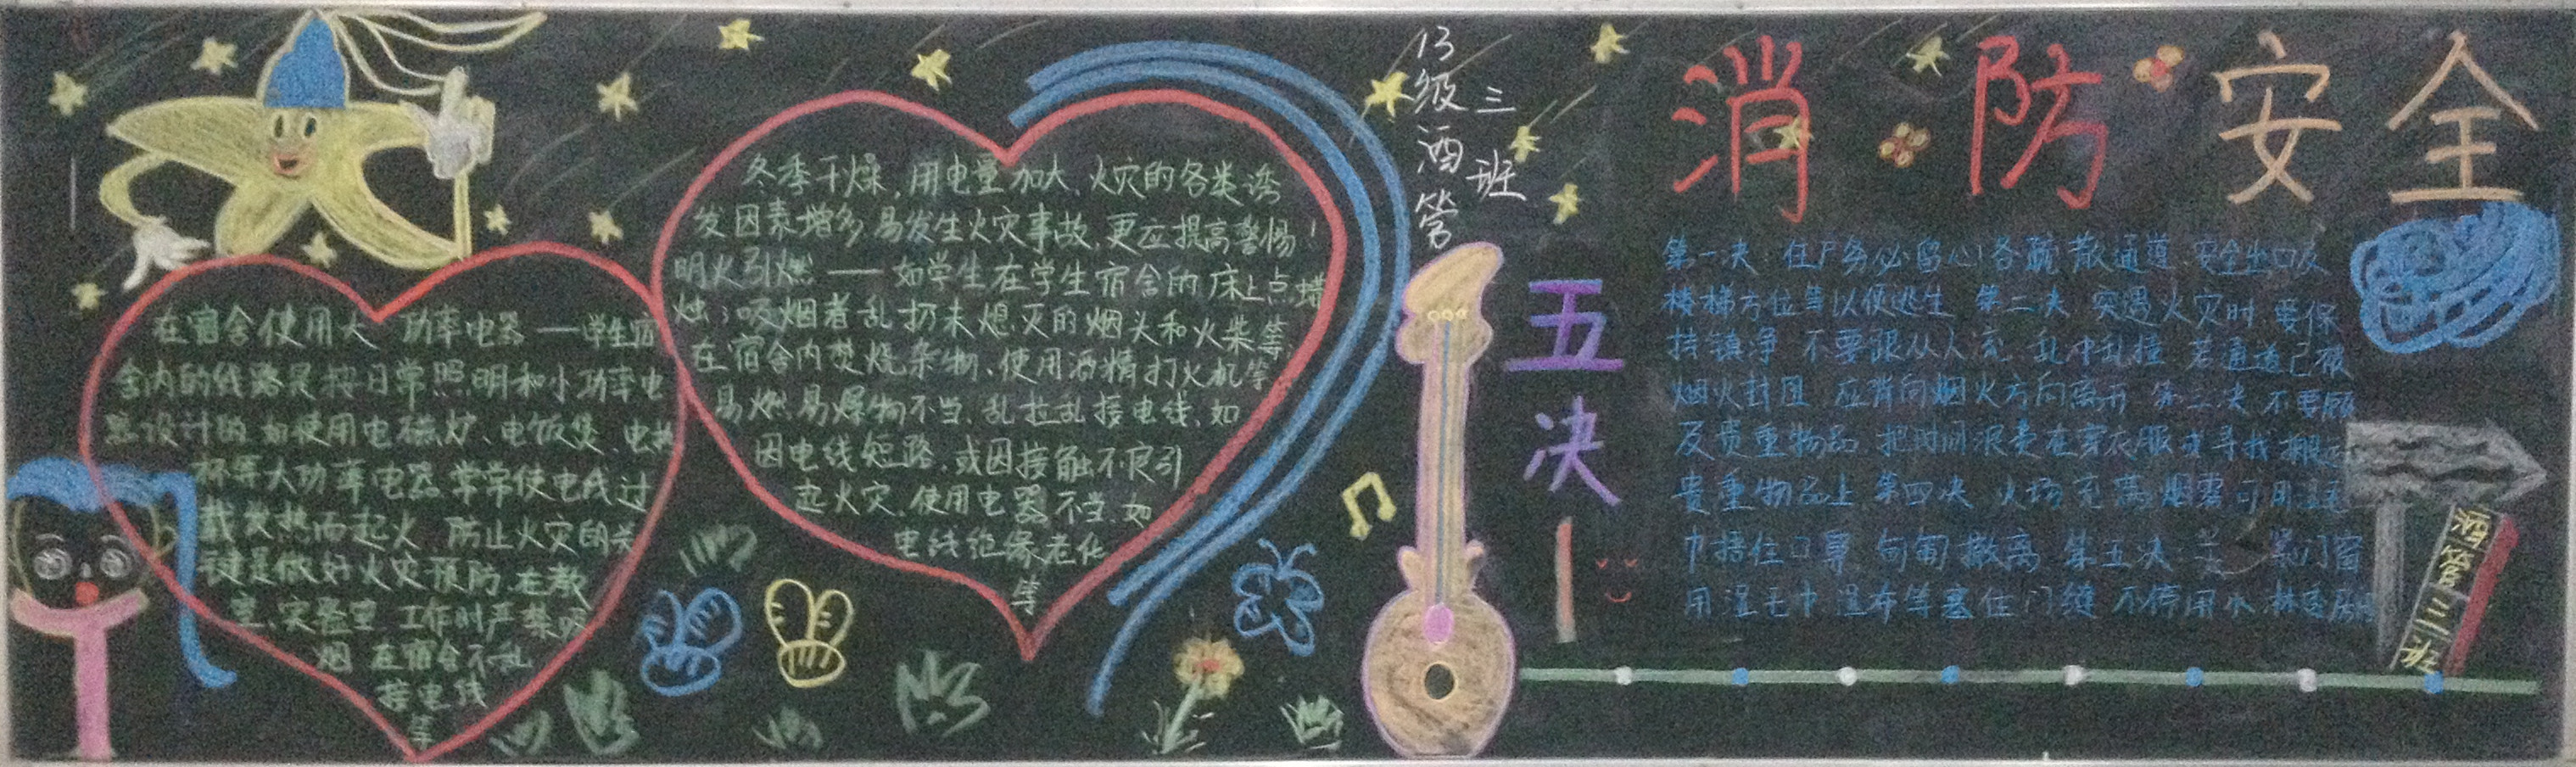 消防安全
13级酒管
三班
五决
在宿舍使用大 功率电器——学生宿
舍内的线路是按日常照明和小功率电
器设计的,如使用电磁炉、电饭煲、电热
杯等大功率电器常常使电线过
载发热而起火 防止火灾的关
键是做好火灾预防.在教
室,实验室 工作时严禁吸
烟 在宿舍不乱
接电线
等
冬季干燥,用电量加大,火灾的各类诱
发因素增多,易发生火灾事故,更应提高警惕!
明火引燃——如学生在学生宿舍的床上点蜡
烛;吸烟者乱扔未熄灭的烟头和火柴等
在宿舍内焚烧杂物、使用酒精打火机等
易燃、易爆物不当、乱拉乱接电线,如
因电线短路,或因接触不良引
起火灾,使用电器不当,如
电线绝缘老化
等
第一决 住户务必留心各疏散通道 安全出口及
楼梯方位等以便逃生 第二决 突遇火灾时,要保
持镇净 不要跟从人流 乱冲乱撞 若通道已被
烟火封阻 应背向烟火方向离开 第三决 不要顾
及贵重物品 把时间浪费在穿衣服或寻找搬运
贵重物品上 第四决 火场充满烟雾可用湿毛
巾捂住口鼻 匍匐撤离 第五决:关 紧门窗
用湿毛巾 湿布等塞住门缝 不停用水淋透房
酒管三班